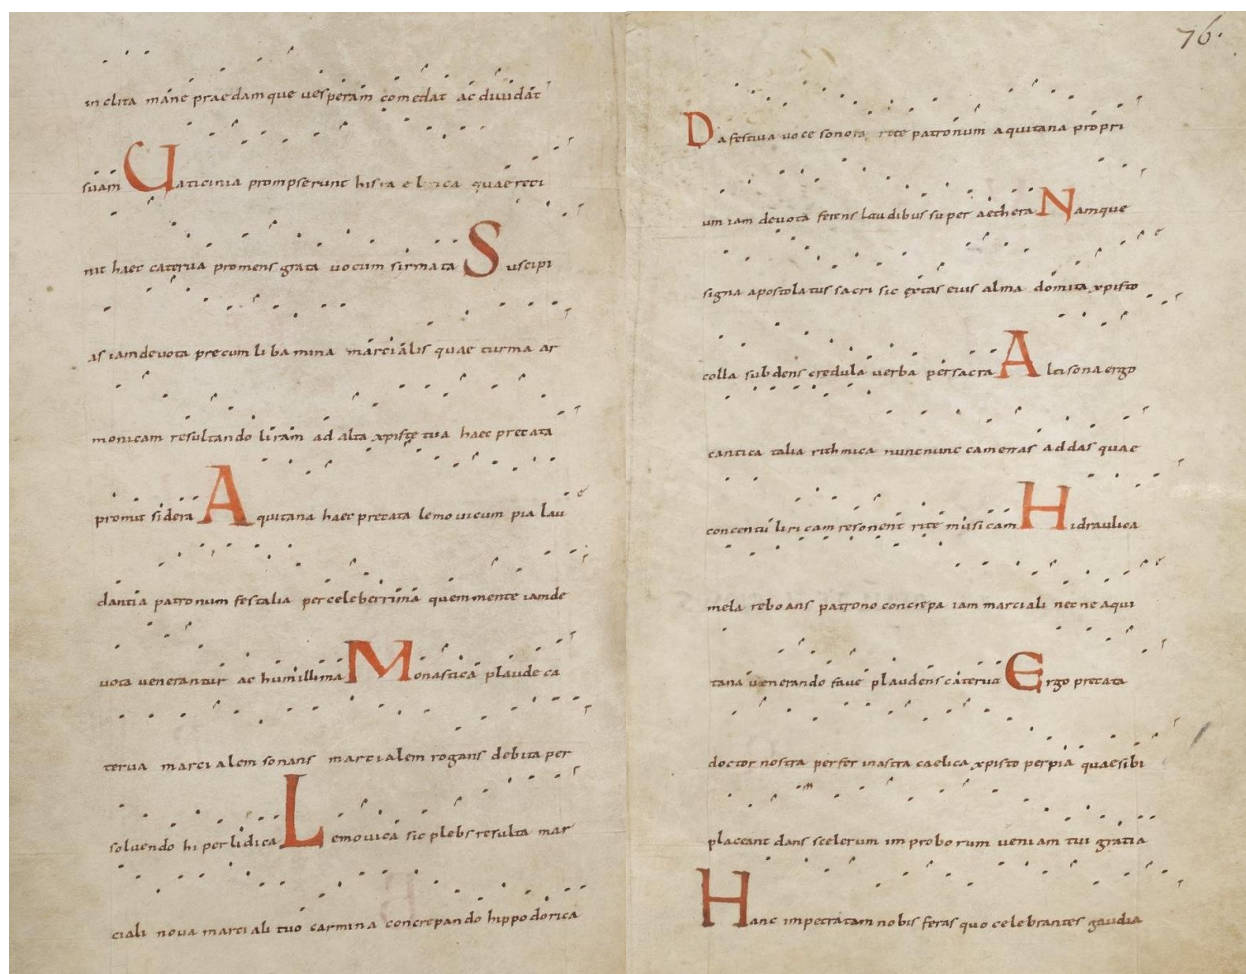 inclita mane praedamque uesperam comedat ac diuidat
suam Uaticinia prompserunt hista quae reti
nit haec caterua promens grata uocum sirmata Suscipi
as iam deuota precum libamina marcialis quae turma ar
monicam resultando liram ad alta xpiste tua haec precata
promit sidera Aquitana haec precata lemouicum pia lau
dantia patronum festalia per celeberrima quem mente iam de
uota uenerantur ac humillima Monastica plaude ca
terua marcialem sonans marcialem rogans debita per
soluendo hiperlidica Lemouica sic plebs resulta mar
ciali noua marciali tuo carmina concrepando hippodorica
76.
Da festiua uoce sonora rite patronum aquitana propri
um iam deuota ferens laudibus super aethera Namque
signa apostolatus sacri sic extas eius alma domita xpisto
colla subdens credula uerba per sacra Alcisona ergo
cantica talia rithmica nunc nunc camenas addas quae
concentu liricam resonent rite musicam Hidraulica
mela reboans patrono concrepa iam marciali necne aqui
tana uenerando faue plaudens caterua Ergo precata
doctor nostra perfer in astra caelica xpisto per pia quae sibi
placeant dans scelerum improborum ueniam tui gratia
Hanc impetratam nobis feras quo celebrantes gaudia